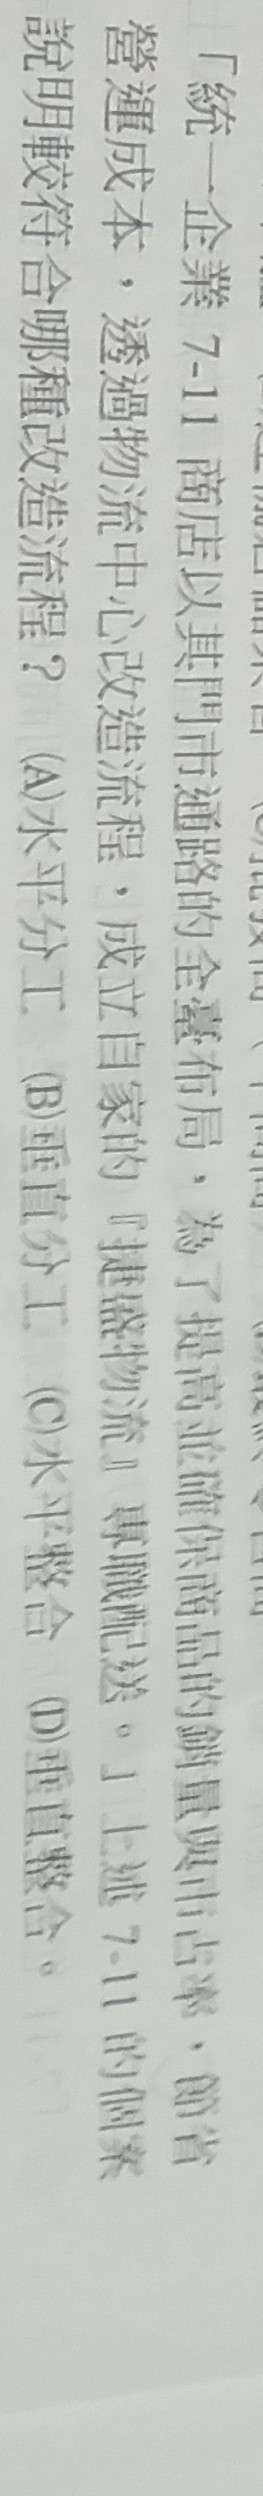 「統一企業 7-11 商店以其門市通路的全臺布局，為了提高並確保商品的銷量與市占率，節省
營運成本，透過物流中心改造流程，成立自家的『捷盛物流』專職配送。」上述 7-11 的個案
說明較符合哪種改造流程？ (A)水平分工 (B)垂直分工 (C)水平整合 (D)垂直整合。